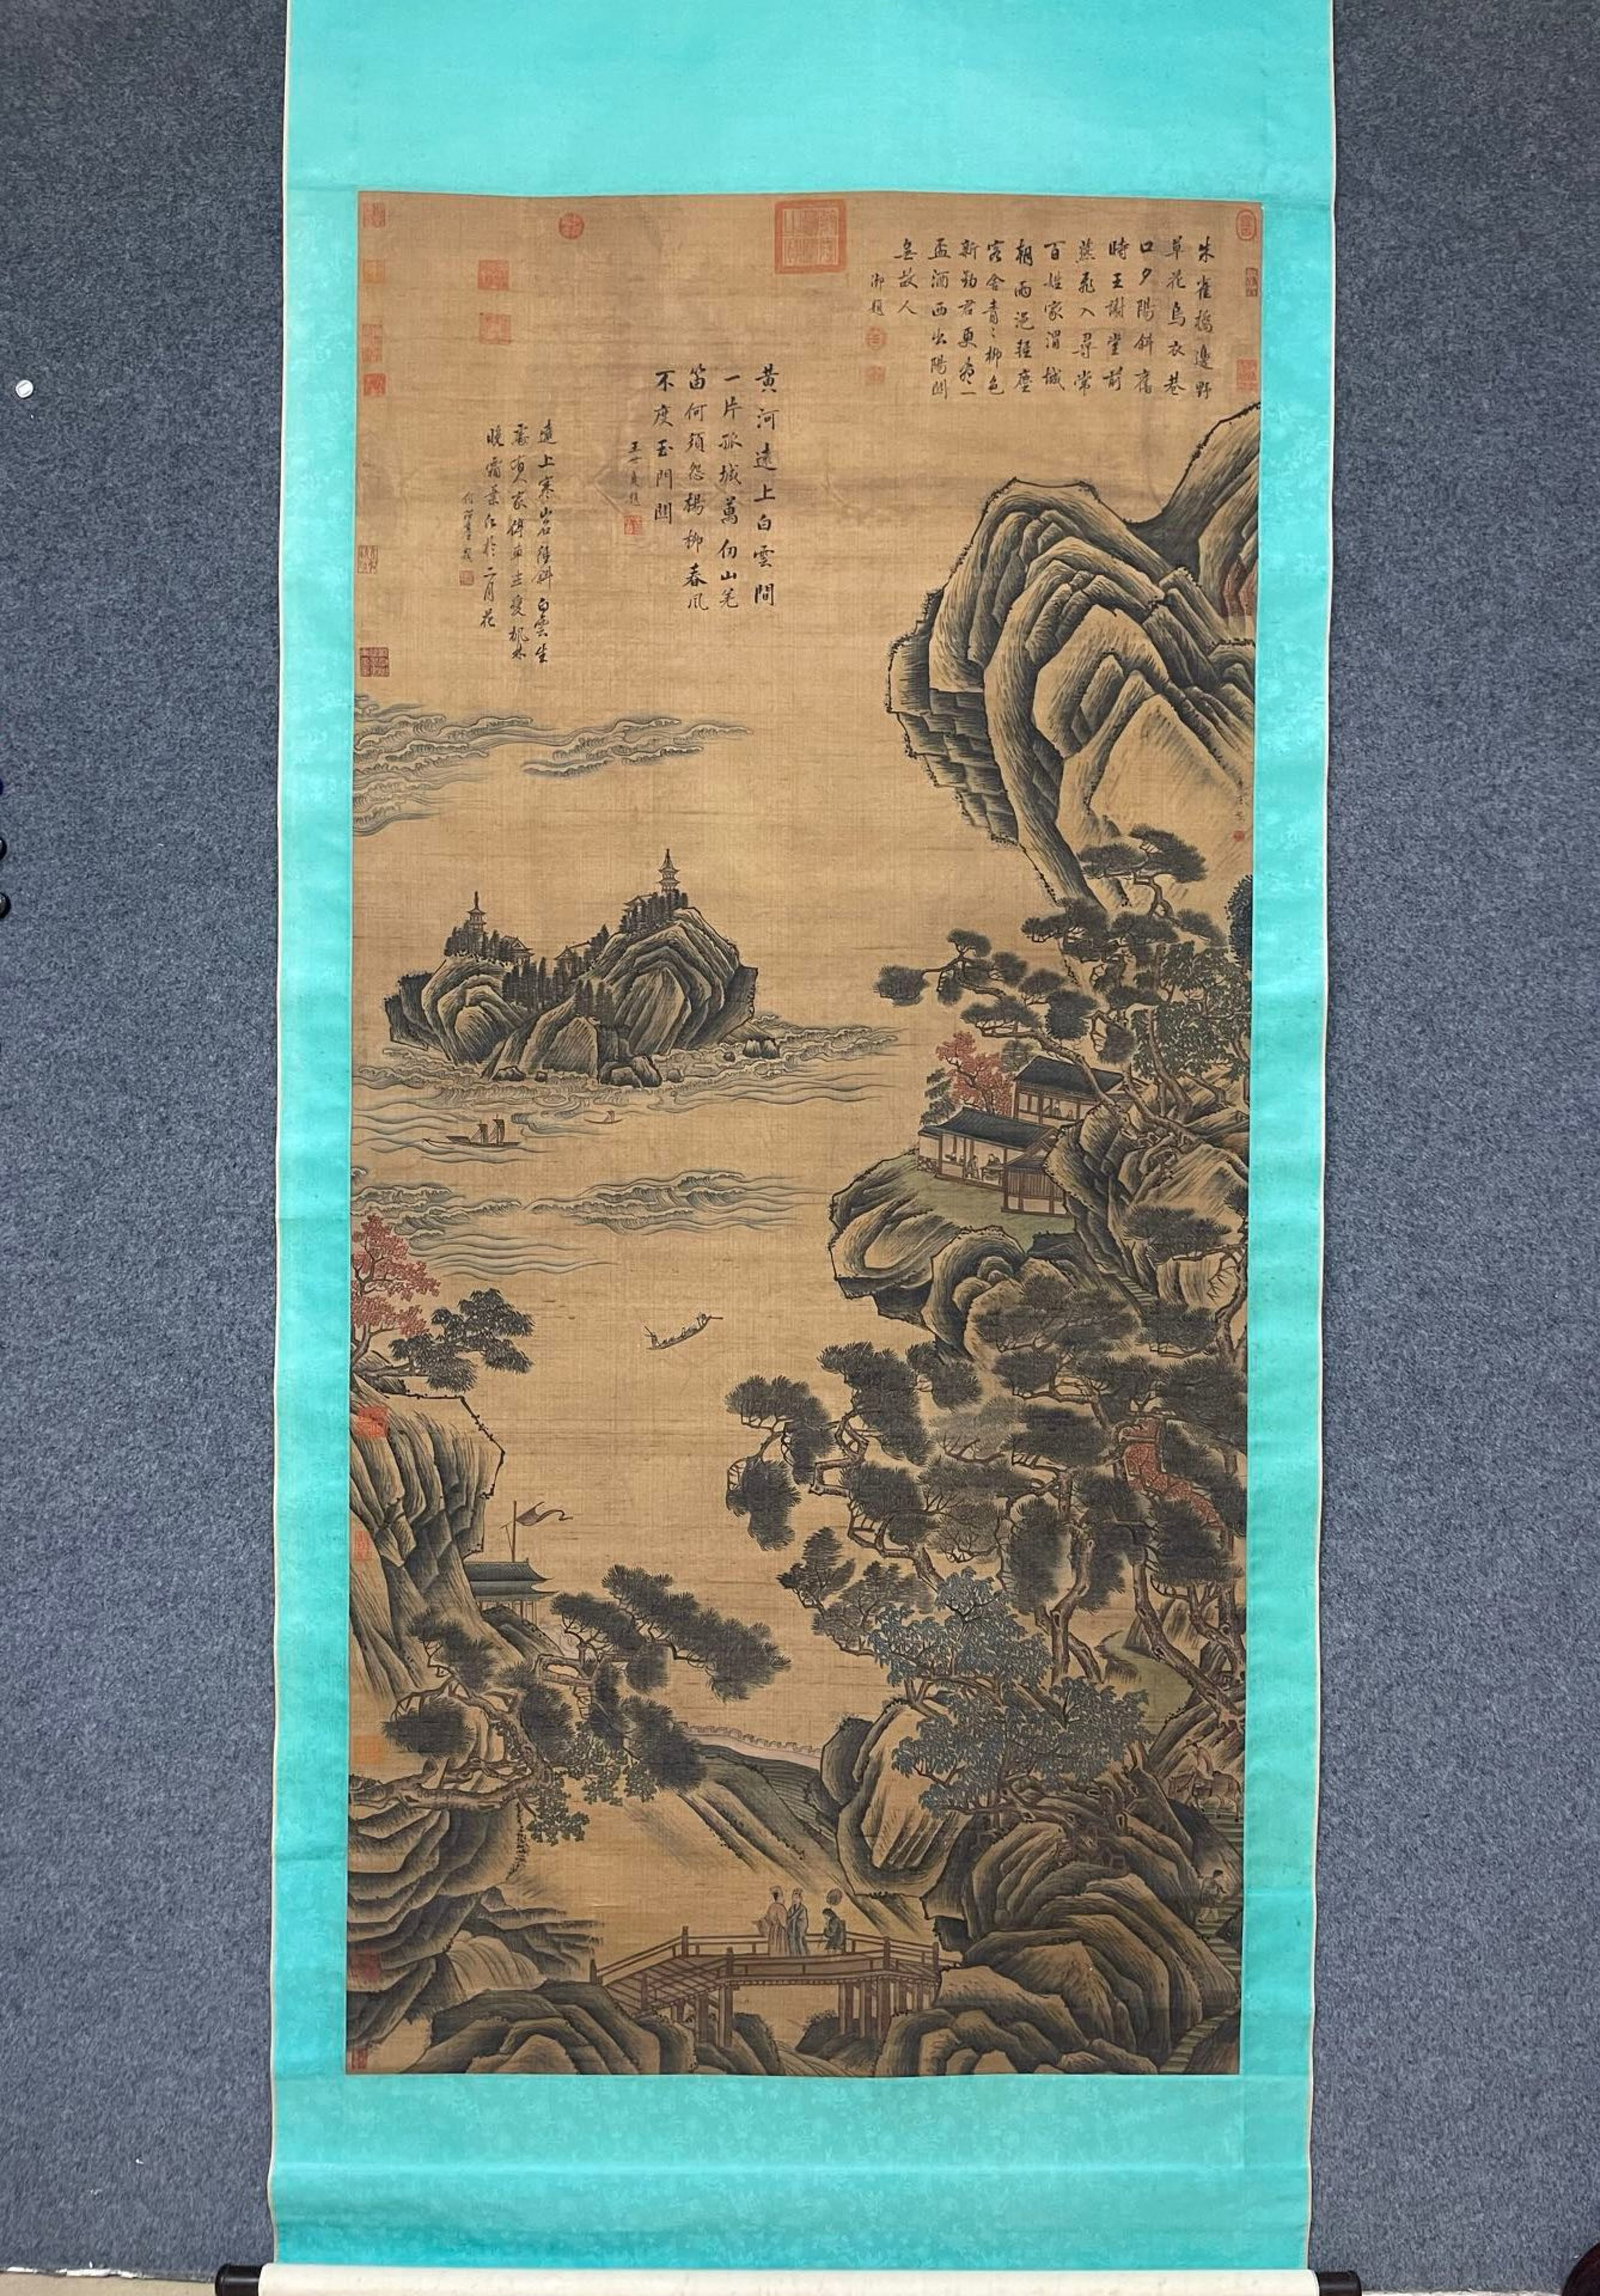 朱雀橋邊野
草花烏衣巷
口夕陽斜舊
時王謝堂前
燕飛入尋常
百姓家渭城
朝雨浥輕塵
客舍青〻柳色
新勸君更盡一
盃酒西出陽關
無故人
御題
黃河遠上白雲間
一片孤城萬仞山羌
笛何須怨楊柳春風
不度玉門關
王世貞題
遠上寒山石徑斜白雲生
處有人家停車坐愛楓林
晚霜葉紅於二月花